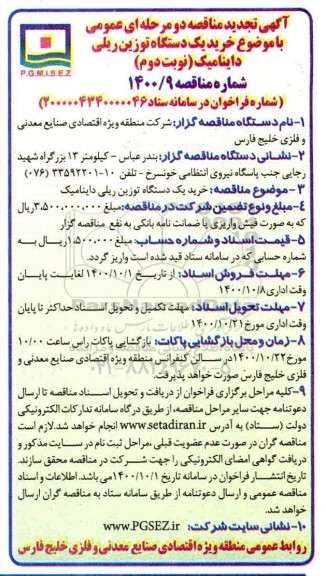 آگهی تجدید مناقصه دو مرحله ای عمومی
با موضوع خرید یک دستگاه توزین ریلی
داینامیک (نوبت دوم)
P.G.M.I.S.E.Z
شماره مناقصه ۱۴۰۰/۹
(شماره فراخوان در سامانه ستاد ۲۰۰۰۰۰۴۳۴۰۰۰۰۰۴۶)
۱-نام دستگاه مناقصه گزار: شرکت منطقه ویژه اقتصادی صنایع معدنی
و فلزی خلیج فارس
۲-نشانی دستگاه مناقصه گزار: بندرعباس - کیلومتر ۱۳ بزرگراه شهید
رجایی جنب پاسگاه نیروی انتظامی خونسرخ - تلفن ۱۰-۳۳۵۹۲۲۰۱ (۰۷۶)
۳-موضوع مناقصه: خرید یک دستگاه توزین ریلی داینامیک
۴-مبلغ و نوع تضمین شرکت در مناقصه: مبلغ ۳،۵۰۰،۰۰۰،۰۰۰ ریال
که به صورت فیش واریزی یا ضمانت نامه بانکی به نفع مناقصه گزار
۵-قیمت اسناد و شماره حساب: مبلغ ۱،۵۰۰،۰۰۰ ریال به
شماره حسابی که در سامانه ستاد قید شده است واریز گردد.
۶-مهلت فروش اسناد: از تاریخ ۱۴۰۰/۱۰/۱ لغایت پایان
وقت اداری ۱۴۰۰/۱۰/۸
۷-مهلت تحویل اسناد: مهلت تکمیل و تحویل اسناد حداکثر تا پایان
وقت اداری مورخ ۱۴۰۰/۱۰/۲۱
۸-زمان و محل بازگشایی پاکات: بازگشایی پاکات راس ساعت ۱۰/۰۰
مورخ ۱۴۰۰/۱۰/۲۲ در سالن کنفرانس منطقه ویژه اقتصادی صنایع معدنی و
فلزی خلیج فارس صورت خواهد پذیرفت.
۹-کلیه مراحل برگزاری فراخوان از دریافت و تحویل اسناد مناقصه تا ارسال
دعوتنامه جهت سایر مراحل مناقصه، از طریق درگاه سامانه تدارکات الکترونیکی
دولت (ستاد) به آدرس www.setadiran.ir انجام خواهد شد. لازم است
مناقصه گران در صورت عدم عضویت قبلی، مراحل ثبت نام در سایت مذکور و
دریافت گواهی امضای الکترونیکی را جهت شرکت در مناقصه محقق سازند.
تاریخ انتشار فراخوان در سامانه تاریخ ۱۴۰۰/۱۰/۱ می باشد. اطلاعات و اسناد
مناقصه عمومی و ارسال دعوتنامه از طریق سامانه ستاد به مناقصه گران ارسال
خواهد شد.
۱۰-نشانی سایت شرکت: www.PGSEZ.ir
روابط عمومی منطقه ویژه اقتصادی صنایع معدنی و فلزی خلیج فارس